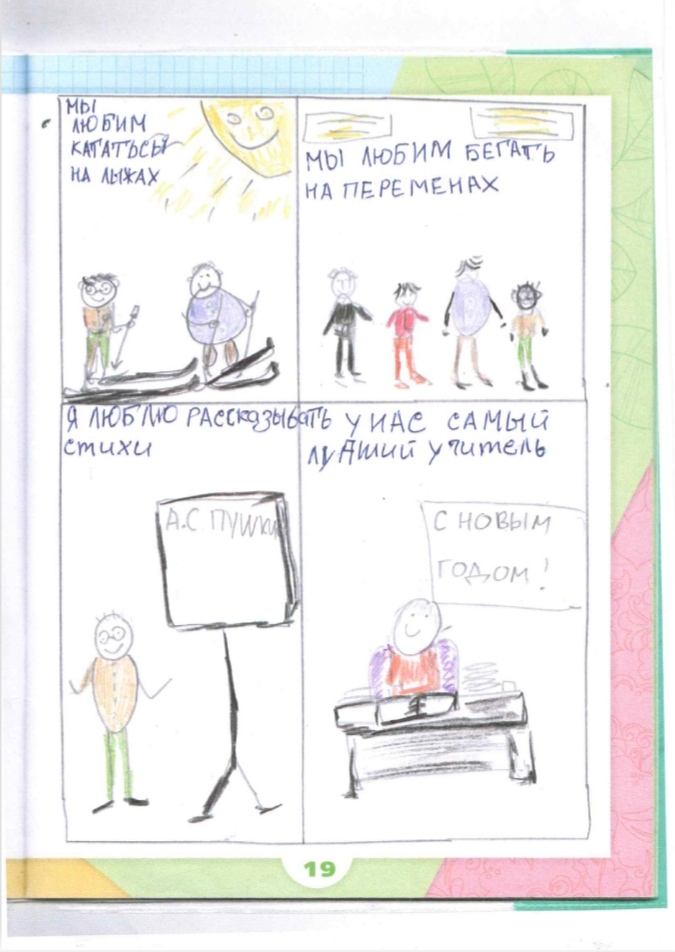 МЫ
ЛЮБИМ
КАТАТЬСЯ
НА ЛЫЖАХ
МЫ ЛЮБИМ БЕГАТЬ
НА ПЕРЕМЕНАХ
Я ЛЮБЛЮ РАССКАЗЫВАТЬ
СТИХИ
А.С. ПУШКИН
У НАС САМЫЙ
ЛУЧШИЙ УЧИТЕЛЬ
С НОВЫМ
ГОДОМ!
19